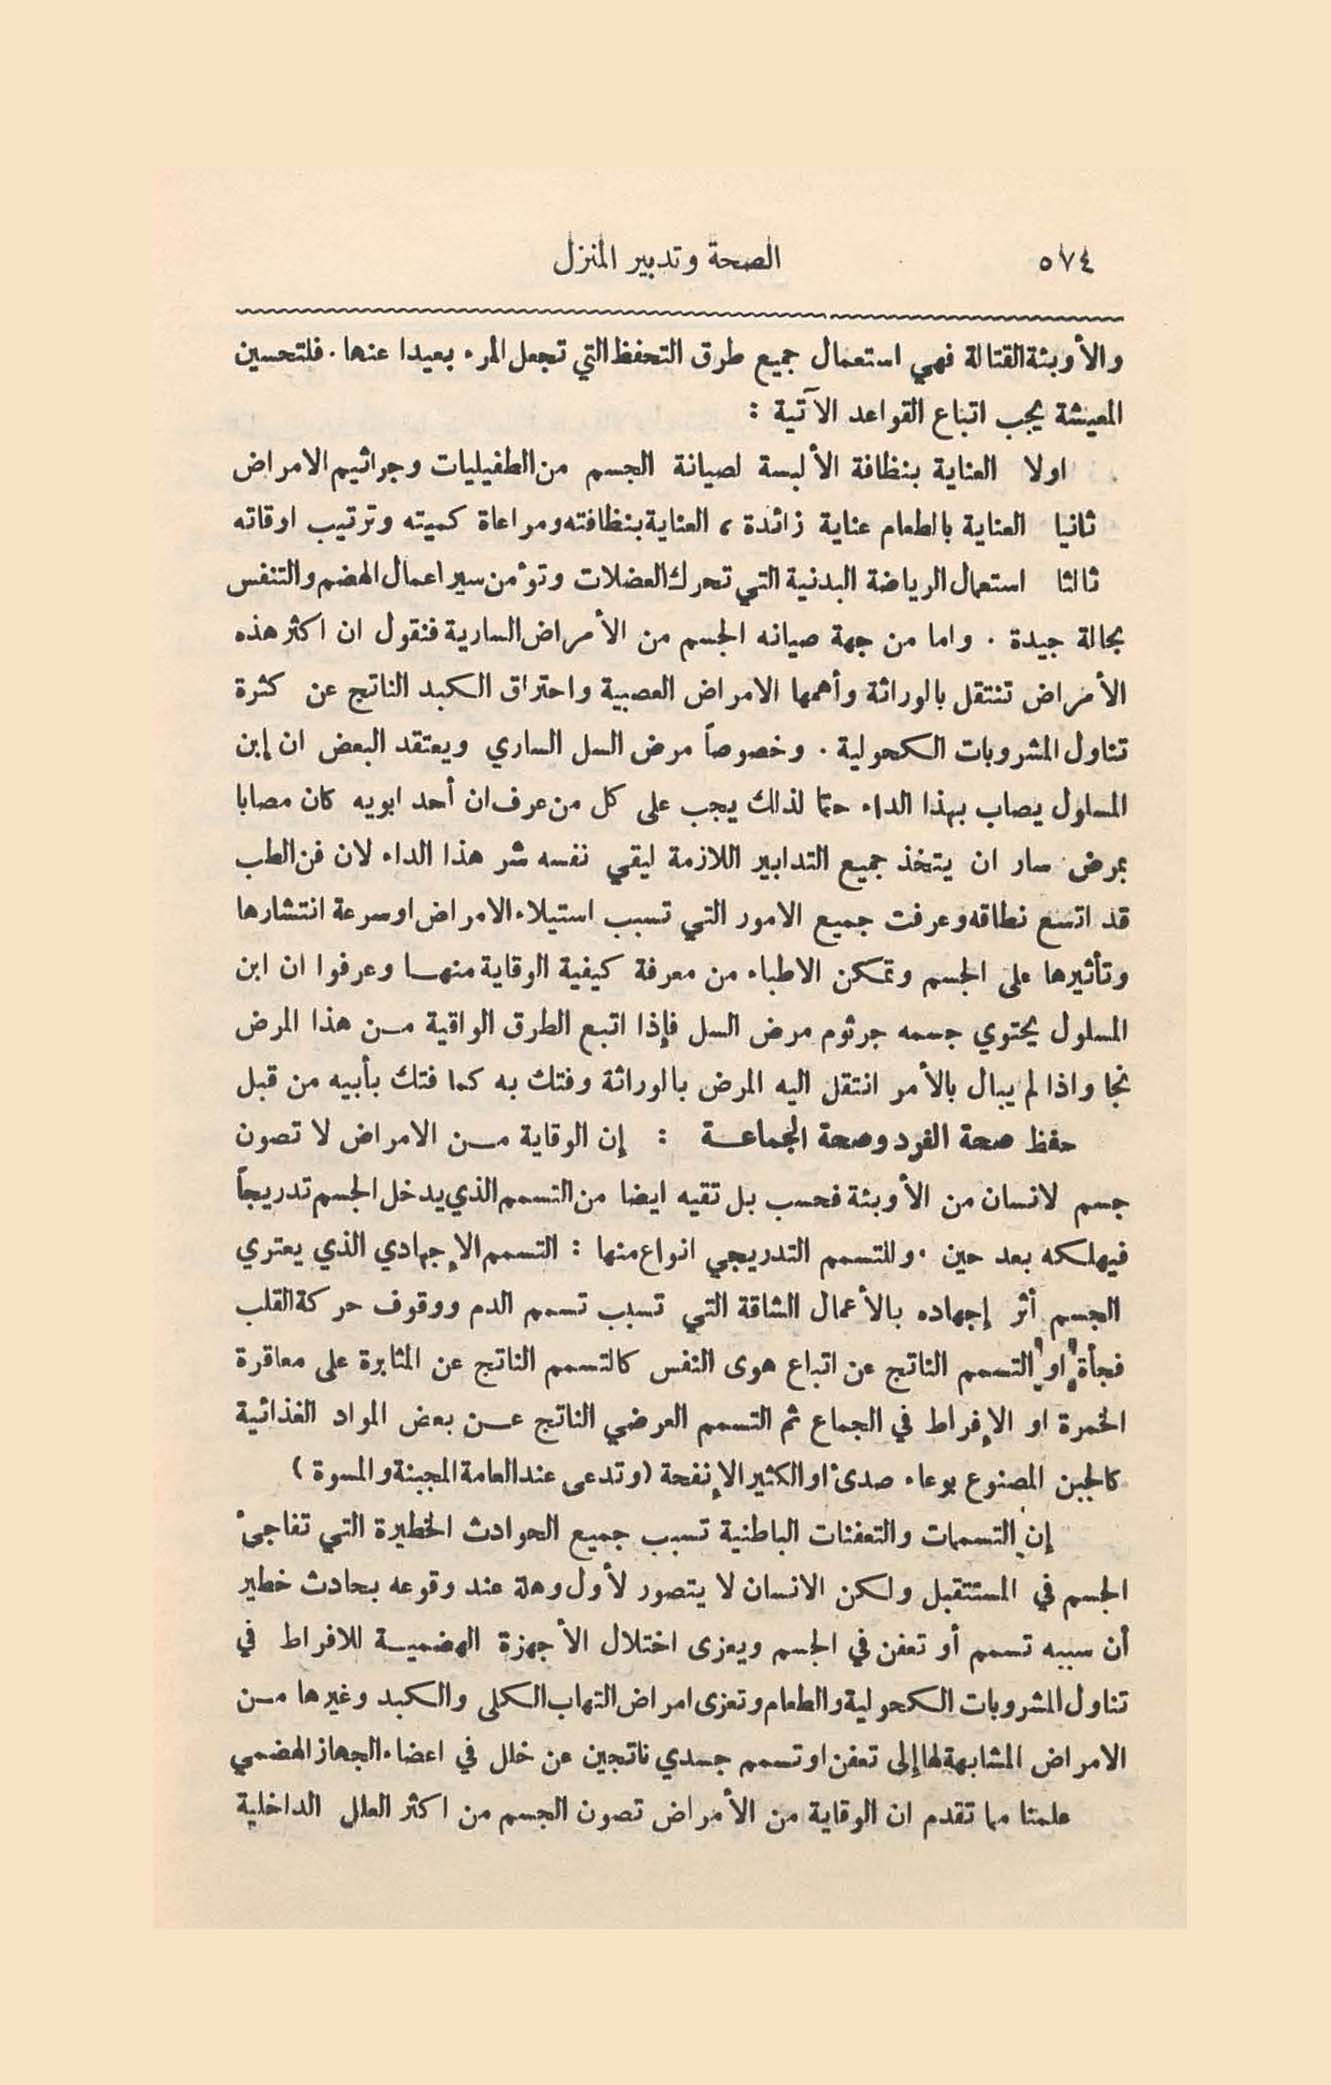 ٥٧٤
الصحة وتدبير المنزل
والأوبئة القتالة فهي استعمال جميع طرق التحفظ التي تجعل المرء بعيدا عنها. فلتحسين
المعيشة يجب اتباع القواعد الآتية :
اولا العناية بنظافة الألبسة لصيانة الجسم من الطفيليات وجراثيم الامراض
ثانيا العناية بالطعام عناية زائدة، العناية بنظافته ومراعاة كميته وترتيب اوقاته
ثالثا استعمال الرياضة البدنية التي تحرك العضلات وتؤمن سير اعمال الهضم والتنفس
بحالة جيدة . واما من جهة صيانه الجسم من الأمراض السارية فنقول ان اكثر هذه
الأمراض تنتقل بالوراثة وأهمها الامراض العصبية واحتراق الكبد الناتج عن كثرة
تناول المشروبات الكحولية . وخصوصاً مرض السل الساري ويعتقد البعض ان إبن
المسلول يصاب بهذا الداء حتما لذلك يجب على كل من عرف ان أحد ابويه كان مصابا
بمرض سار ان يتخذ جميع التدابير اللازمة ليقي نفسه شر هذا الداء لان فن الطب
قد اتسع نطاقه وعرفت جميع الامور التي تسبب استيلاء الامراض او سرعة انتشارها
وتأثيرها على الجسم وتمكن الاطباء من معرفة كيفية الوقاية منها وعرفوا ان ابن
المسلول يحتوي جسمه جرثوم مرض السل فإذا اتبع الطرق الواقية من هذا المرض
نجا واذا لم يبال بالأمر انتقل اليه المرض بالوراثة وفتك به كما فتك بأبيه من قبل
حفظ صحة الفرد وصحة الجماعة : إن الوقاية من الامراض لا تصون
جسم لانسان من الأوبئة فحسب بل تقيه ايضا من التسمم الذي يدخل الجسم تدريجاً
فيهلكه بعد حين . وللتسمم التدريجي انواع منها : التسمم الإجهادي الذي يعتري
الجسم أثر إجهاده بالأعمال الشاقة التي تسبب تسمم الدم ووقوف حركة القلب
فجأة او التسمم الناتج عن اتباع هوى النفس كالتسمم الناتج عن المثابرة على معاقرة
الخمرة او الإفراط في الجماع ثم التسمم العرضي الناتج عن بعض المواد الغذائية
كالجبن المصنوع بوعاء صدئ او الكثير الإنفحة (وتدعى عند العامة المجبنة والمسوة)
إن التسممات والتعفنات الباطنية تسبب جميع الحوادث الخطيرة التي تفاجئ
الجسم في المستقبل ولكن الانسان لا يتصور لأول وهلة عند وقوعه بحادث خطير
أن سببه تسمم أو تعفن في الجسم ويعزى اختلال الأجهزة الهضمية للافراط في
تناول المشروبات الكحولية والطعام وتعزى امراض التهاب الكلى والكبد وغيرها من
الامراض المشابهة لها إلى تعفن او تسمم جسدي ناتجين عن خلل في اعضاء الجهاز الهضمي
علمنا مما تقدم ان الوقاية من الأمراض تصون الجسم من اكثر العلل الداخلية